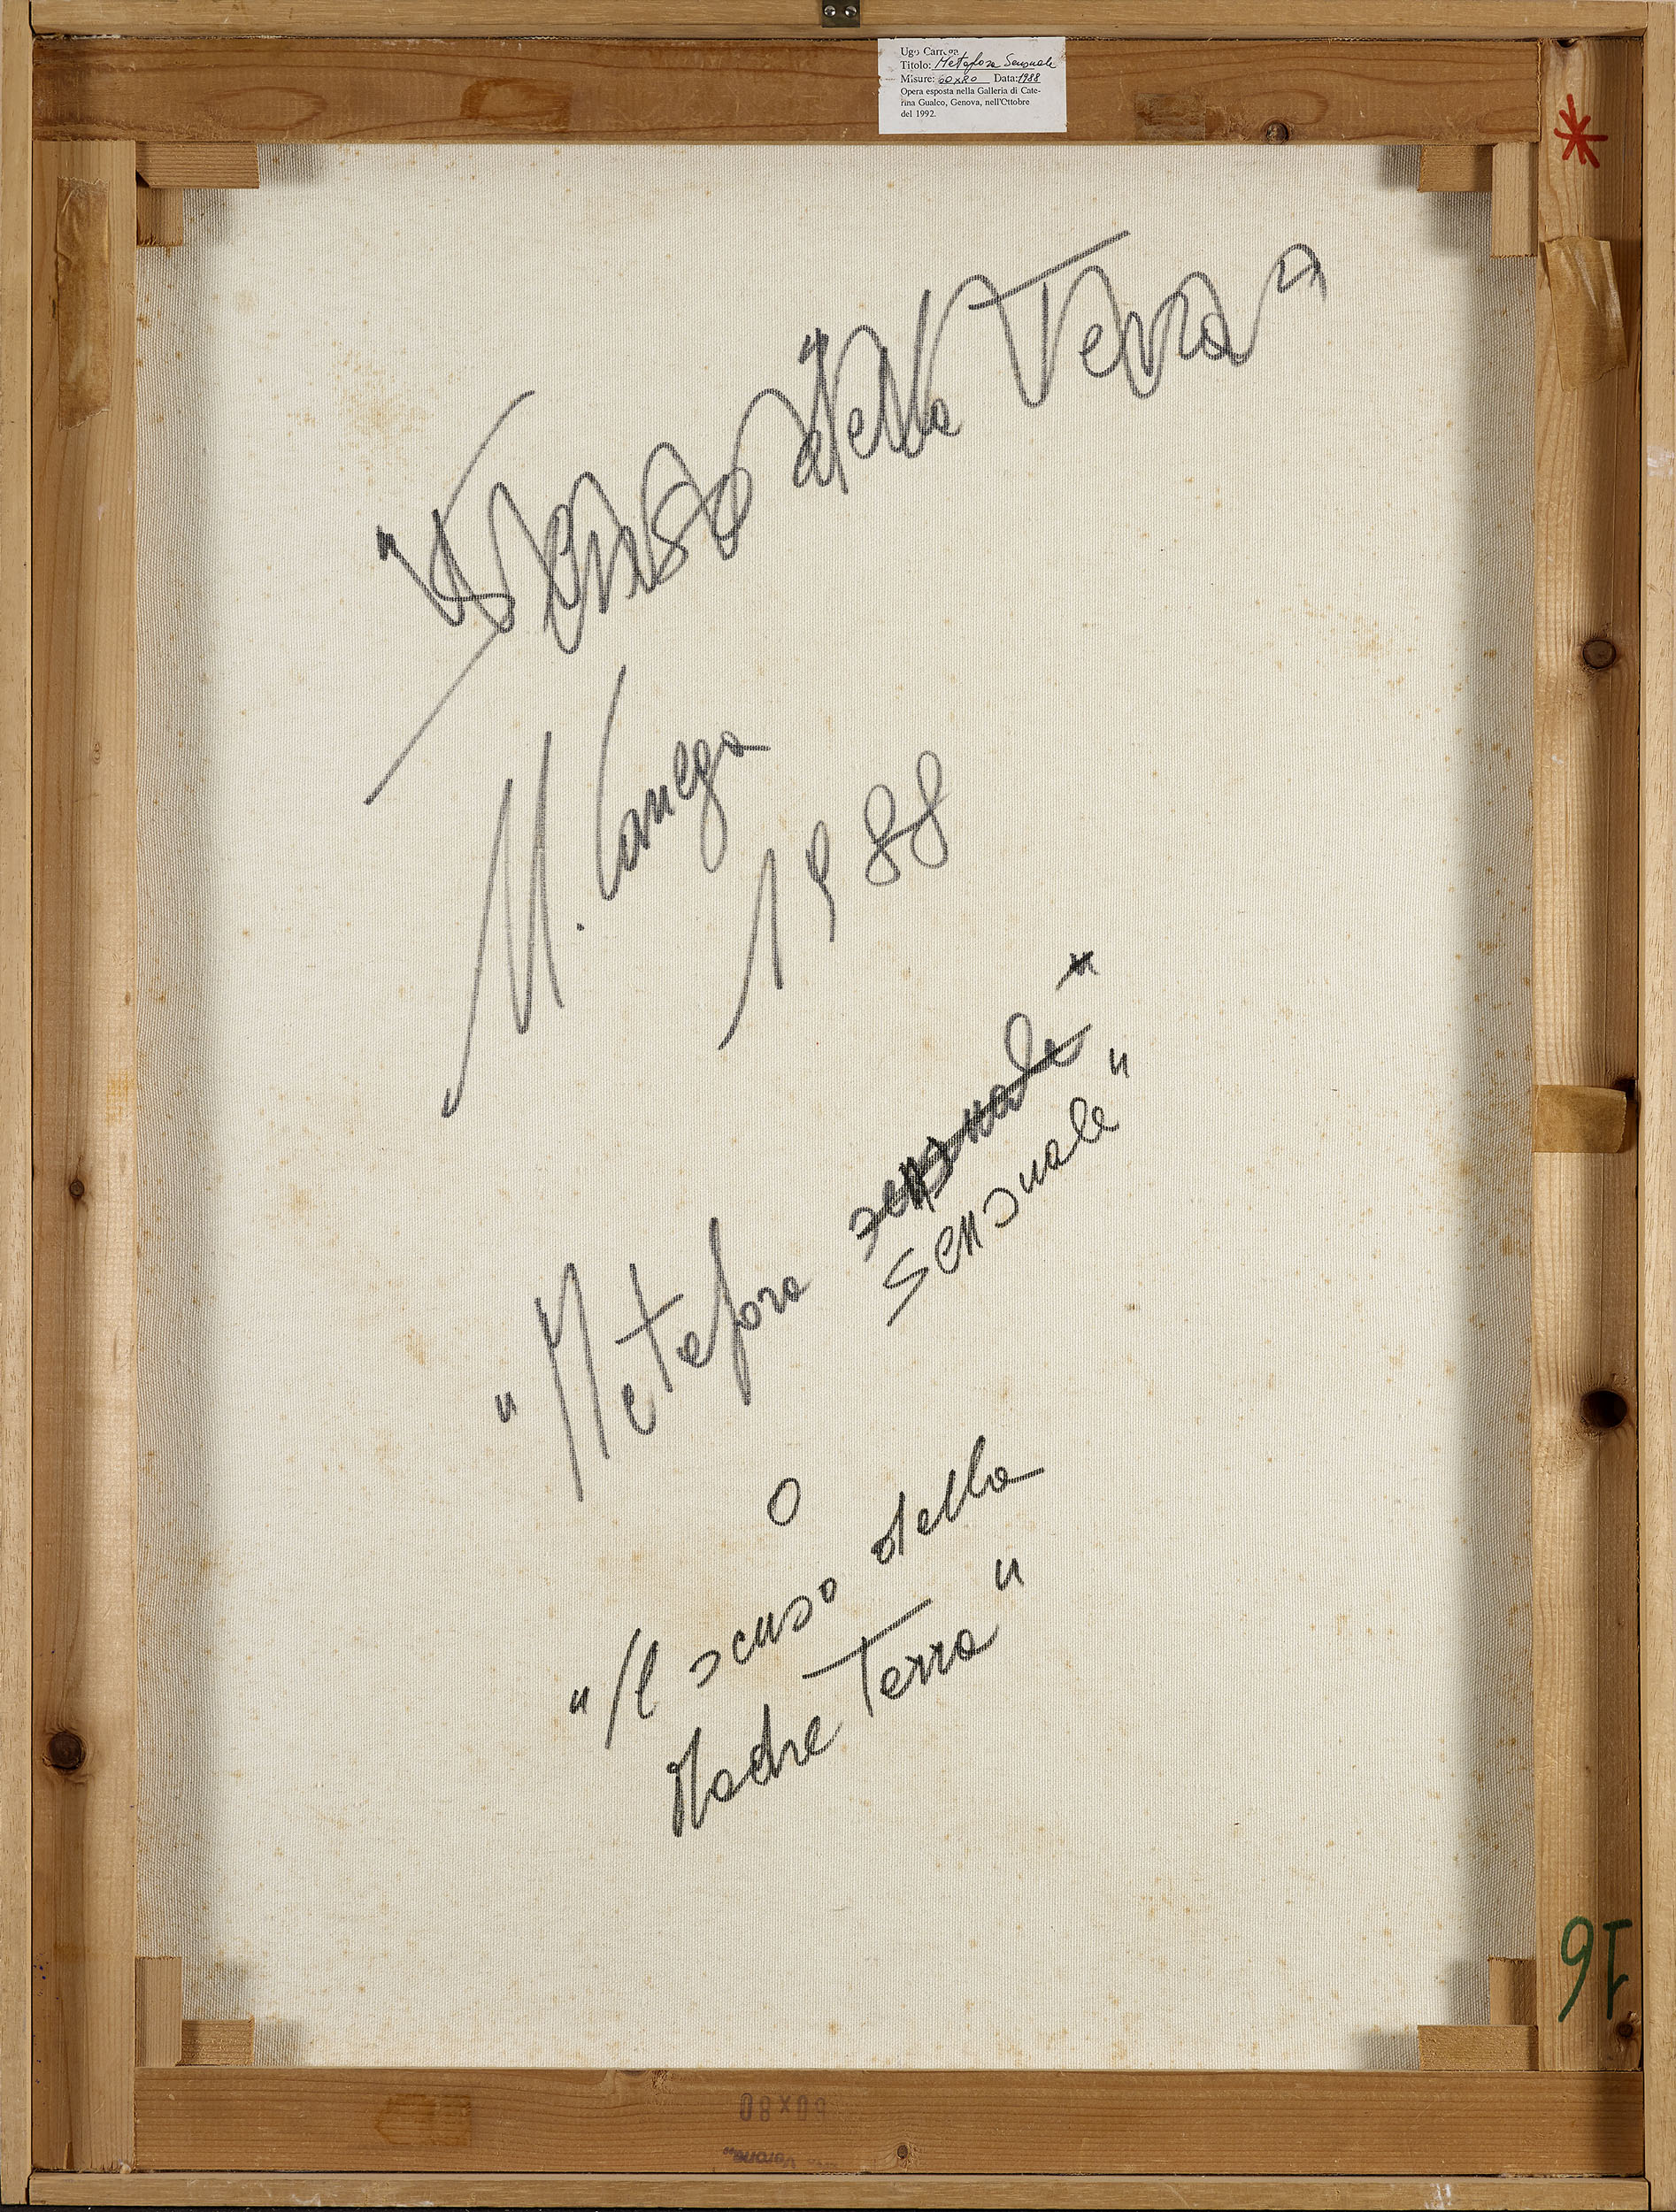 Ugo Carrega
Titolo: Metafora Sensuale
Misure: 60x80 Data: 1988
Opera esposta nella Galleria di Cate-
rina Gualco, Genova, nell'Ottobre
del 1992.
*
"Il senso della Terra"
U. Carrega
1988
*
"Metafora sensuale
sensuale"
o
"Il senso della
Madre Terra"
16
60X80